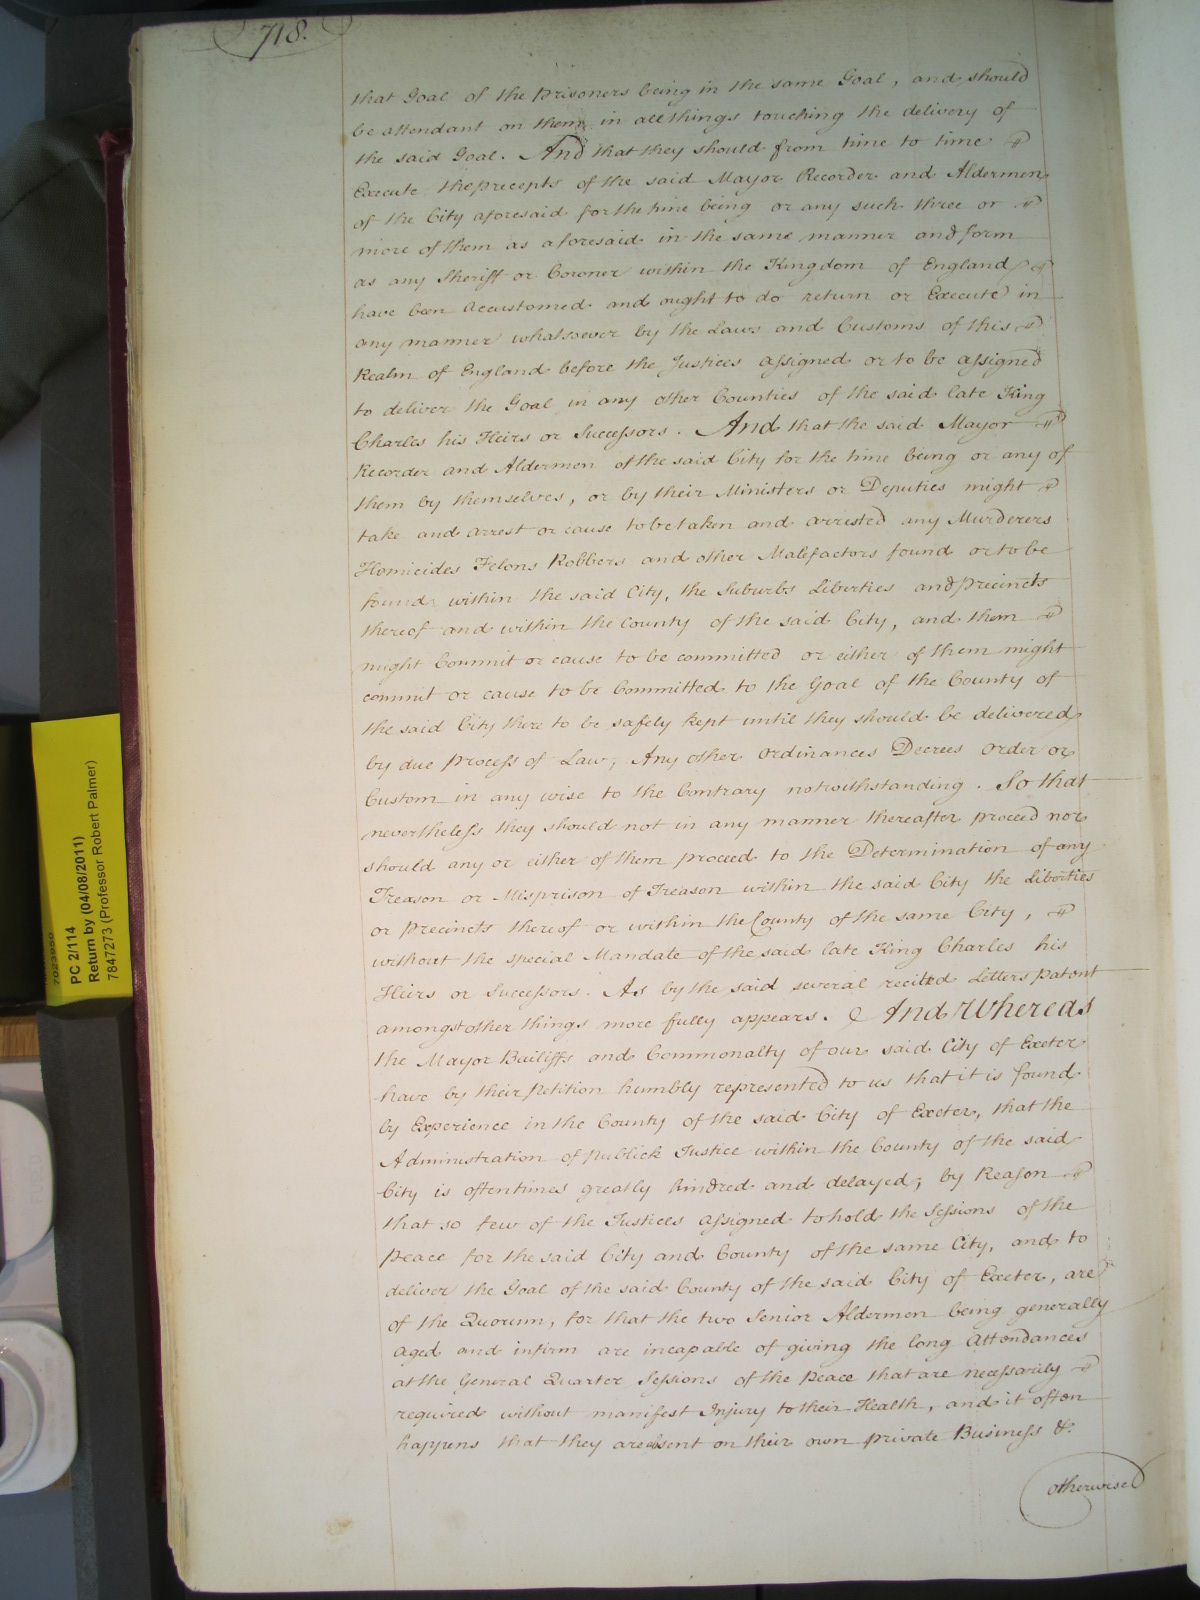 718.
that Goal of the Prisoners being in the same Goal, and should
be attendant on them, in all things touching the delivery of
the said Goal. And that they should from time to time
Execute the precepts of the said Mayor Recorder and Aldermen
of the City aforesaid for the time being or any such three or
more of them as aforesaid in the same manner and form
as any Sheriff or Coroner within the Kingdom of England
have been accustomed and ought to do return or Execute in
any manner whatsoever by the Laws and Customs of this
Realm of England before the Justices assigned or to be assigned
to deliver the Goal in any other Counties of the said late King
Charles his Heirs or Successors. And that the said Mayor
Recorder and Aldermen of the said City for the time being or any of
them by themselves, or by their Ministers or Deputies might
take and arrest or cause to be taken and arrested any Murderers
Homicides Felons Robbers and other Malefactors found or to be
found within the said City, the Suburbs Liberties and Precincts
thereof and within the County of the said City, and them
might Commit or cause to be committed or either of them might
commit or cause to be Committed to the Goal of the County of
the said City there to be safely kept until they should be delivered
by due Process of Law, Any other Ordinances Decrees Order or
Custom in any wise to the Contrary notwithstanding. So that
nevertheless they should not in any manner thereafter proceed nor
should any or either of them proceed to the Determination of any
Treason or Misprison of Treason within the said City the Liberties
or Precincts thereof or within the County of the same City,
without the special Mandate of the said late King Charles his
Heirs or Successors. As by the said several recited Letters patent
amongst other things more fully appears. And Whereas
the Mayor Bailiffs and Commonalty of our said City of Exeter
have by their Petition humbly represented to us that it is found
by Experience in the County of the said City of Exeter, that the
Administration of publick Justice within the County of the said
City is oftentimes greatly hindred and delayed, by Reason
that so few of the Justices assigned to hold the Sessions of the
Peace for the said City and County of the same City, and to
deliver the Goal of the said County of the said City of Exeter, are
of the Quorum, for that the two Senior Aldermen being generally
aged and infirm are incapable of giving the long Attendances
at the General Quarter Sessions of the Peace that are necessarily
required without manifest Injury to their Health, and it often
happens that they are absent on their own private Business &
otherwise
7023950
PC 2/114
Return by (04/08/2011)
7847273 (Professor Robert Palmer)